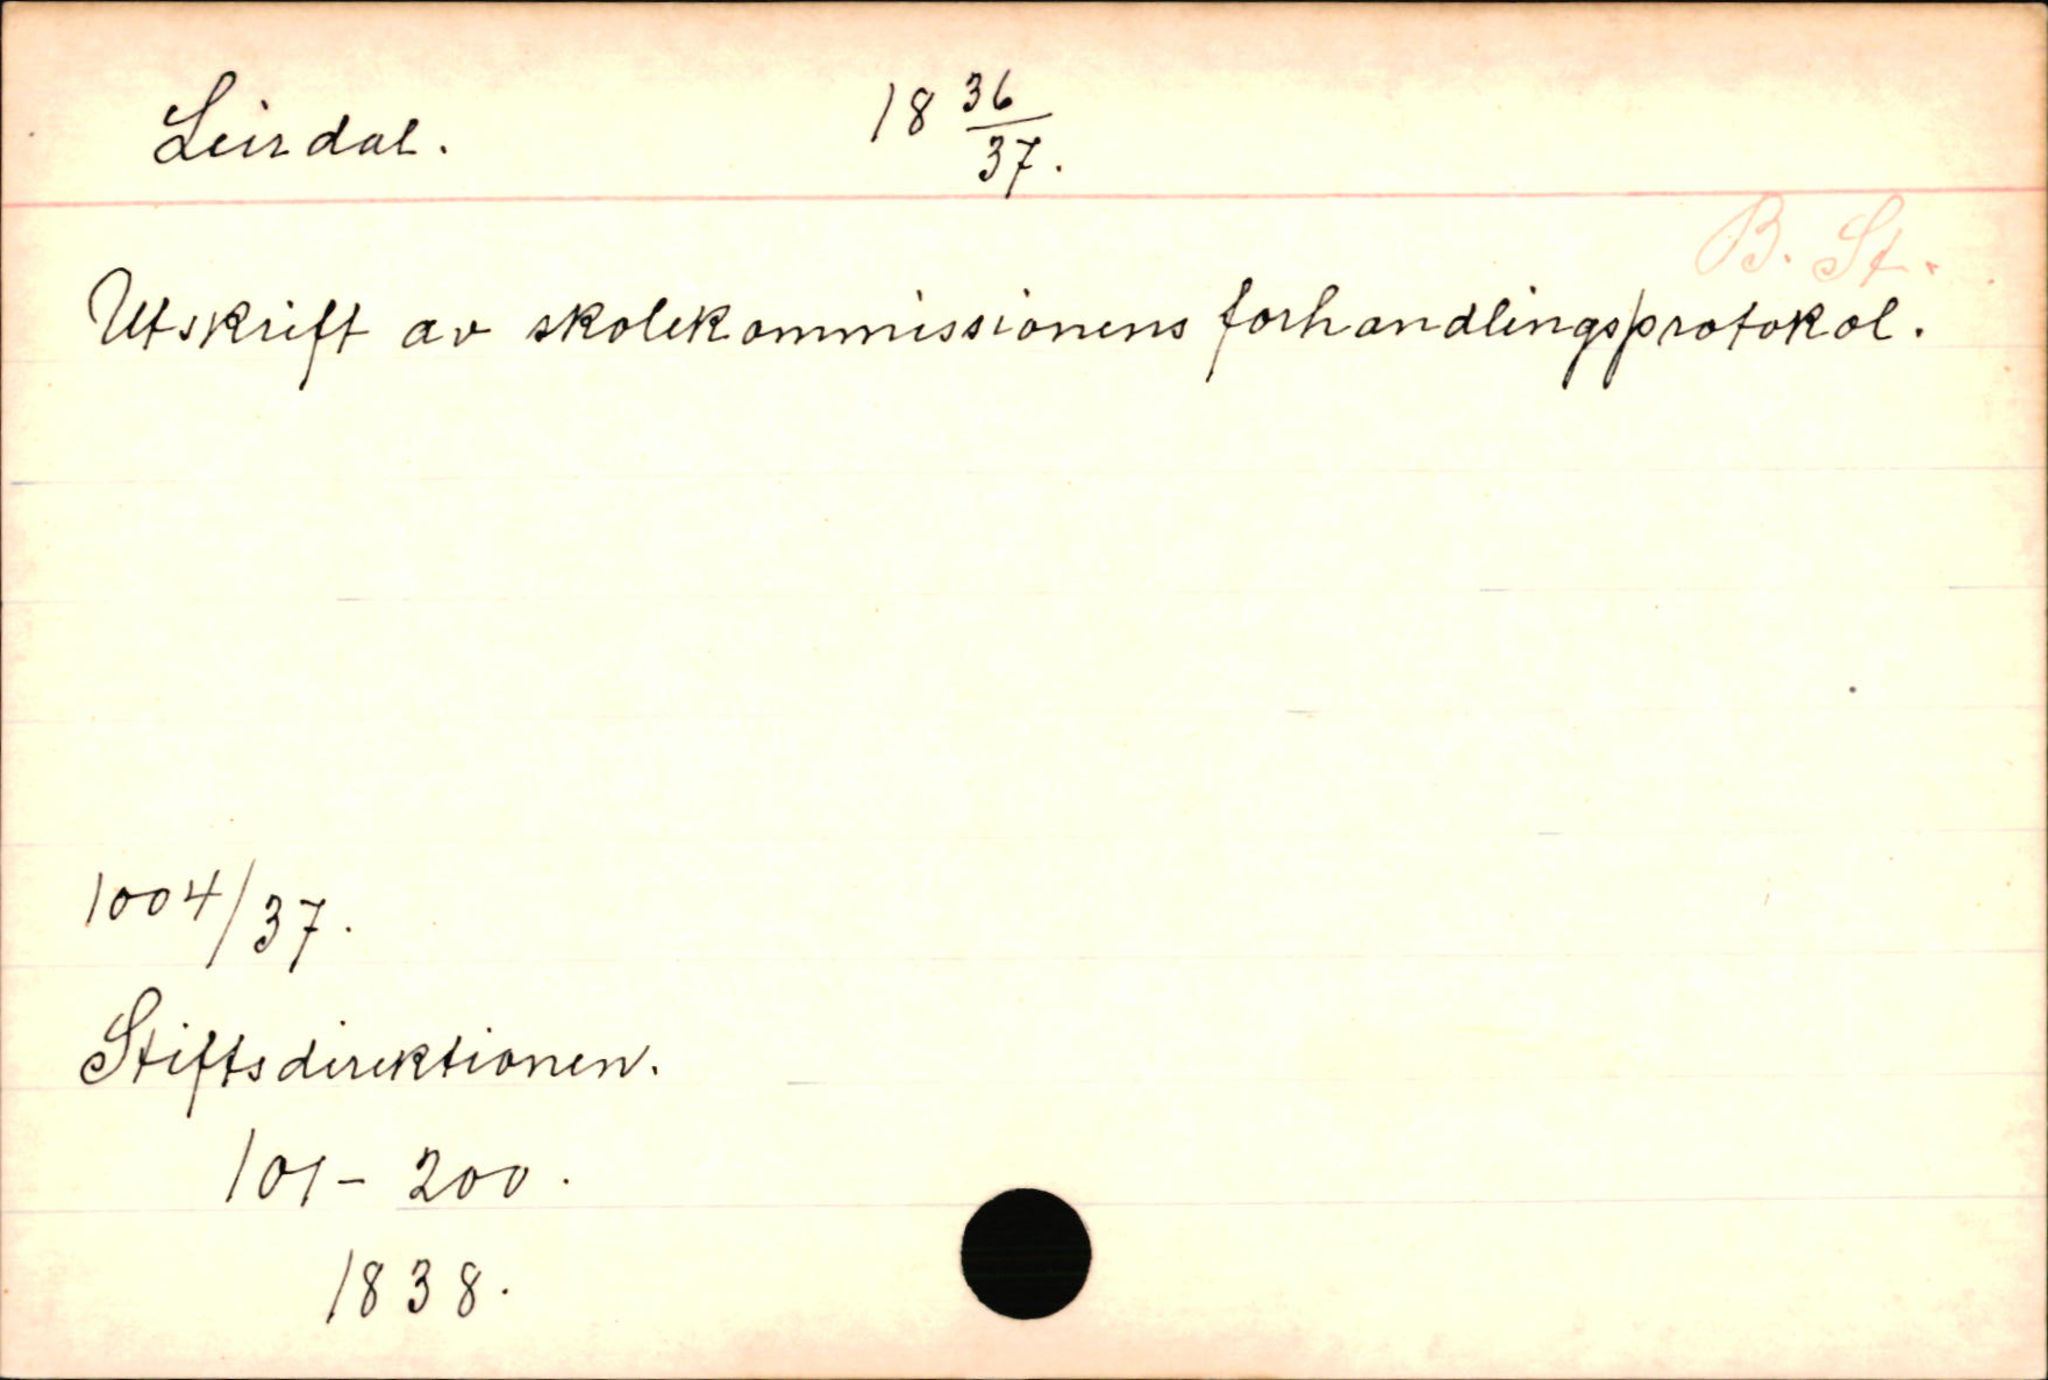 Leirdal. 18 36/37.
B. St.
Utskrift av skolekommissionens forhandlingsprotokol.
1004/37.
Stiftsdirektionen.
101 - 200.
1838.